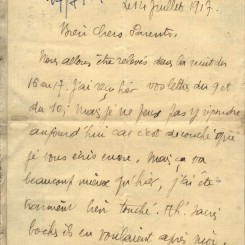 Le 14 Juillet 1917.
Bien Chers Parents.
Nous allons être relevés dans la nuit du
16 au 17. J'ai reçu hier vos lettres du 9 et
du 10, mais je ne peux pas y répondre
aujourd'hui car c'est de couché que
je vous écris encore. Mais ça va
beaucoup mieux qu'hier, j'ai été
vraiment bien touché. Ah!
boches ils en voulaient après moi,